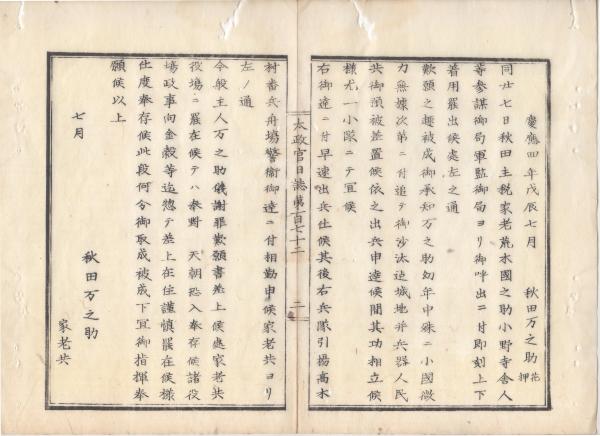 慶應四年戊辰七月　秋田万之助 花押
同廿七日秋田主税家老荒木國之助小野寺舎人
等參謀御局軍監御局ヨリ御呼出ニ付即刻上下
着用罷出候處左之通
歎願之趣被成御承知万之助幼年中殊ニ小國微
力無據次第ニ付追テ御沙汰迄城地并兵器人民
共御預被差置候依之出兵申達候間其功相立候
様尤一小隊ニテ宜候
右御達ニ付早速出兵仕候其後右兵隊引揚高木
太政官日誌第百七十二
二
村番兵舟場警衞御達ニ付相勤申候家老共ヨリ
左ノ通
今般主人万之助儀謝罪歎願書差上候處家老共
役場ニ罷在候テハ奉對　天朝恐入奉存候諸役
場政事向金穀等迄惣テ差上在住謹慎罷在候様
仕度奉存候此段何分御取成被成下宜御指揮奉
願候以上
七月
秋田万之助
家老共